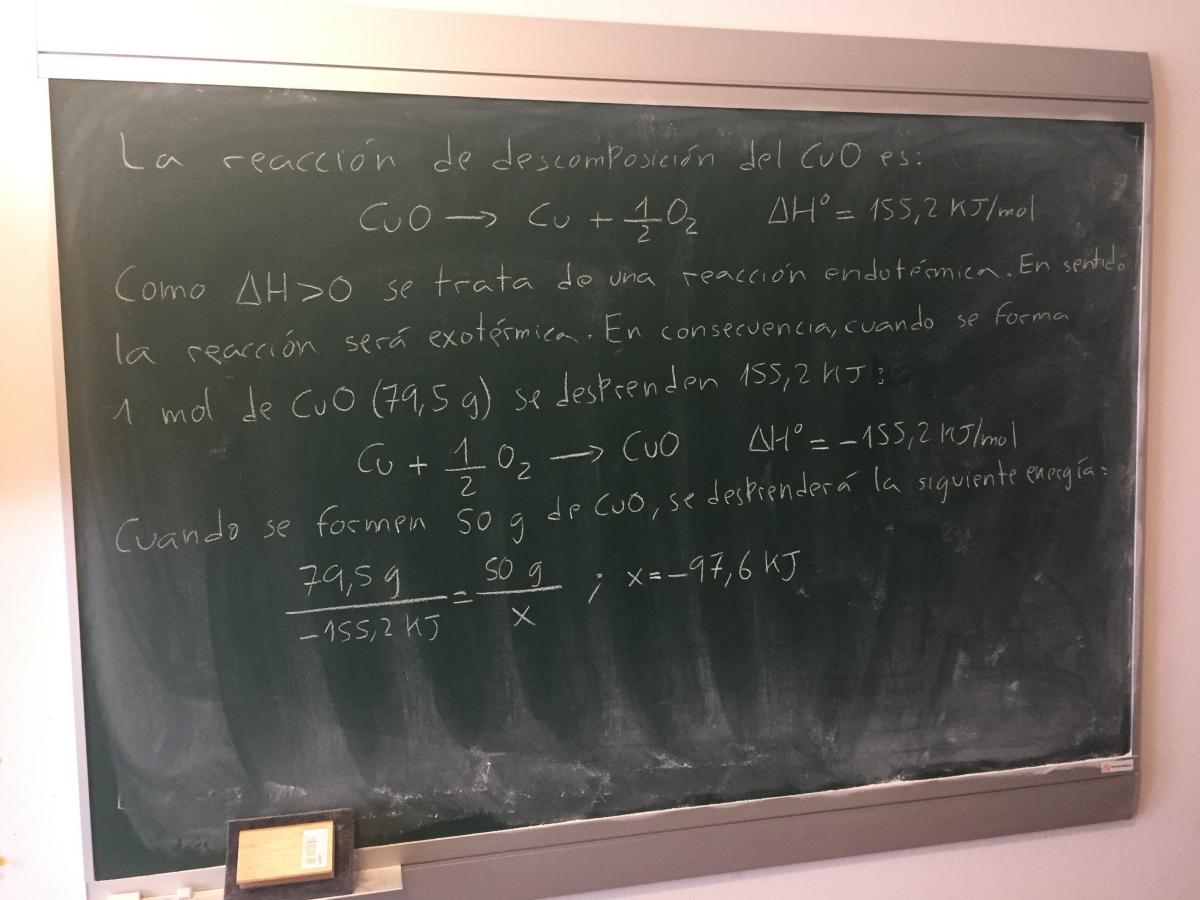 La reacción de descomposición del CuO es:
CuO → Cu + 1/2 O₂ ΔH° = 155,2 KJ/mol
Como ΔH>0 se trata de una reacción endotérmica. En sentido
la reacción será exotérmica. En consecuencia, cuando se forma
1 mol de CuO (79,5 g) se desprenden 155,2 KJ:
Cu + 1/2 O₂ → CuO ΔH° = -155,2 KJ/mol
Cuando se formen 50 g de CuO, se desprenderá la siguiente energía:
79,5 g / -155,2 KJ = 50 g / x ; x = -97,6 KJ